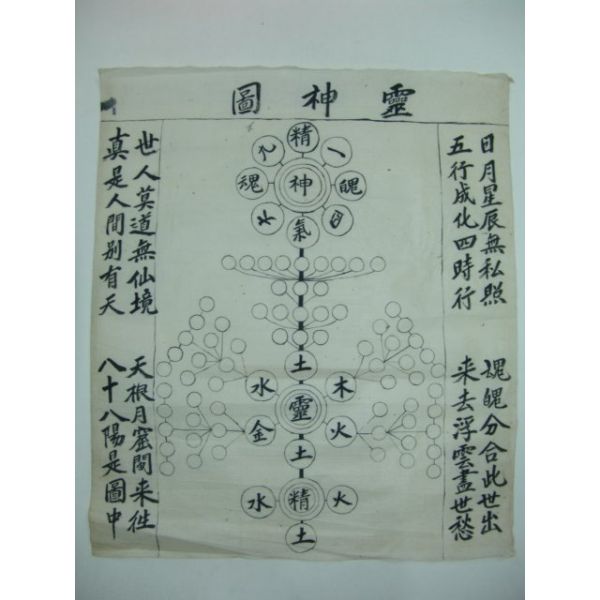 靈神圖
日月星辰無私照
五行成化四時行
魂魄分合此世出
来去浮雲盡世愁
精
魂 神 魄
氣
土
水 木
靈
金 火
土
水 精 火
土
世人莫道無仙境
真是人間別有天
天根月窟閑来徃
八十八陽是圖中